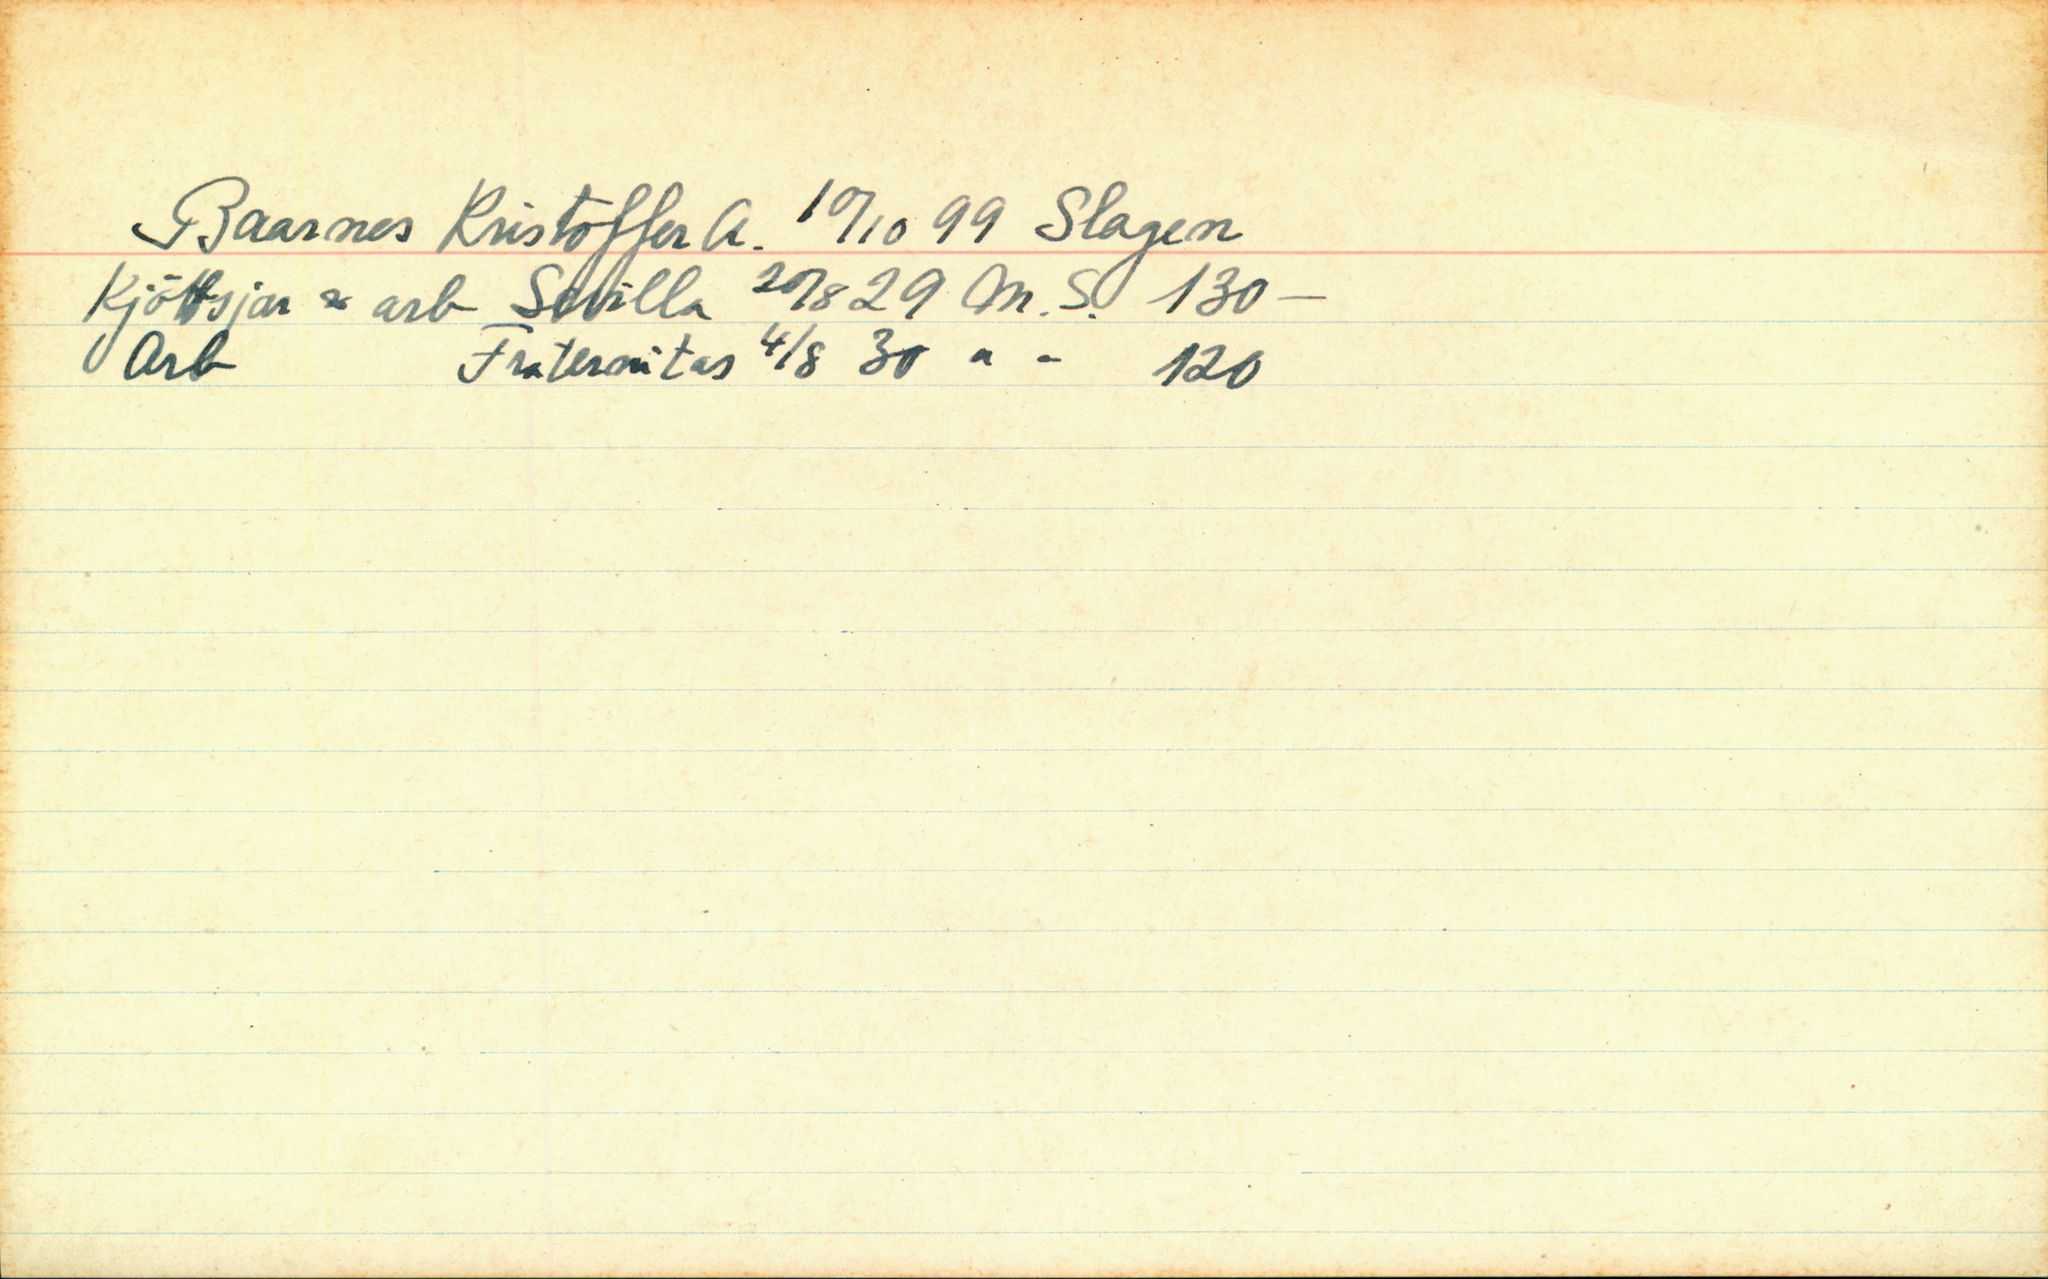 Baarnes Kristoffer A. 10/10 99 Slagen
Kjöttsjar & arb Sevilla 20/8 29 M.S. 130 –
Arb Fraternitas 4/8 30 " - 120